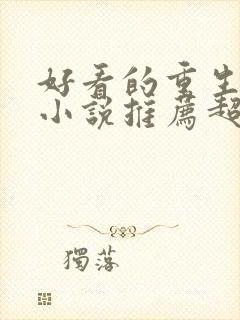 好看的重生
小說推薦超
獨落